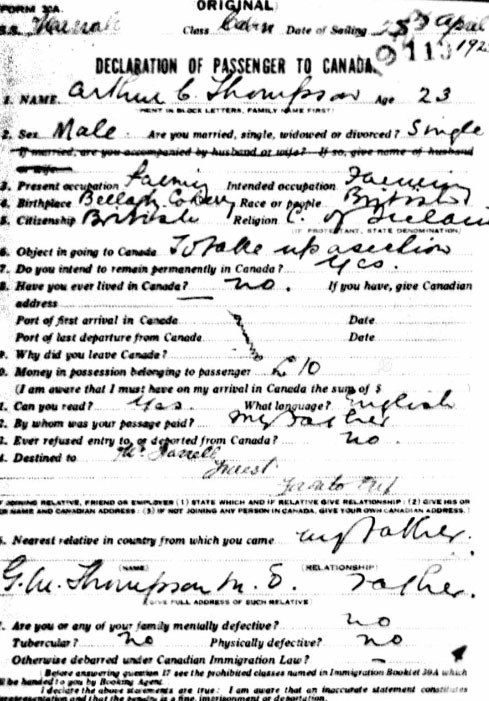 FORM 30A. ORIGINAL
S.S. Class Cabin Date of Sailing April
113 192
DECLARATION OF PASSENGER TO CANADA.
1. NAME Arthur C. Thompson Age 23
(PRINT IN BLOCK LETTERS, FAMILY NAME FIRST)
2. Sex Male Are you married, single, widowed or divorced? Single
If married, are you accompanied by husband or wife? If so, give name of husband
or wife
3. Present occupation Farming Intended occupation Farming
4. Birthplace Race or people British
5. Citizenship British Religion C. of Ireland
(IF PROTESTANT, STATE DENOMINATION)
6. Object in going to Canada To take up a section
7. Do you intend to remain permanently in Canada? Yes.
8. Have you ever lived in Canada? no. If you have, give Canadian
address
Port of first arrival in Canada Date
Port of last departure from Canada Date
9. Why did you leave Canada?
0. Money in possession belonging to passenger £10
(I am aware that I must have on my arrival in Canada the sum of $
1. Can you read? Yes. What language? English
2. By whom was your passage paid? my Father
3. Ever refused entry to, or deported from Canada? no
4. Destined to Mr. Farrell
Forest
F JOINING RELATIVE, FRIEND OR EMPLOYER (1) STATE WHICH AND IF RELATIVE GIVE RELATIONSHIP: (2) GIVE HIS OR
ER NAME AND CANADIAN ADDRESS: (3) IF NOT JOINING ANY PERSON IN CANADA, GIVE YOUR OWN CANADIAN ADDRESS.)
5. Nearest relative in country from which you came my Father.
(NAME) (RELATIONSHIP)
G. W. Thompson M. D. Father.
(GIVE FULL ADDRESS OF SUCH RELATIVE)
7. Are you or any of your family mentally defective? no
Tubercular? no Physically defective? no
Otherwise debarred under Canadian Immigration Law? —
(Before answering question 17 see the prohibited classes named in Immigration Booklet 30A which
will be handed to you by Booking Agent.
I declare the above statements are true: I am aware that an inaccurate statement constitutes
representation and that the penalty is a fine, imprisonment or deportation.